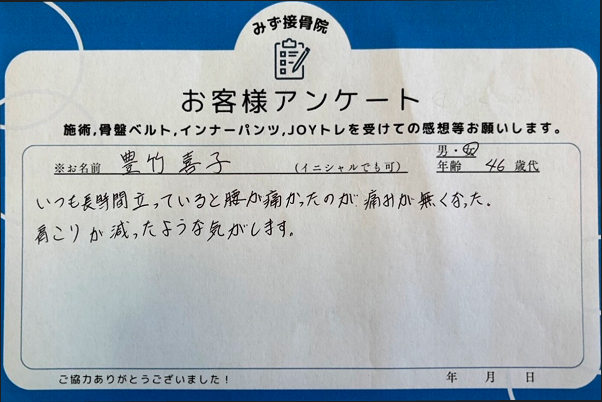 みず接骨院
お客様アンケート
施術,骨盤ベルト,インナーパンツ,JOYトレを受けての感想等お願いします。
男・女
※お名前 豊竹 喜子 (イニシャルでも可) 年齢 46 歳代
いつも長時間立っていると腰が痛かったのが痛みが無くなった.
肩こりが減ったような気がします。
ご協力ありがとうございました! 年 月 日